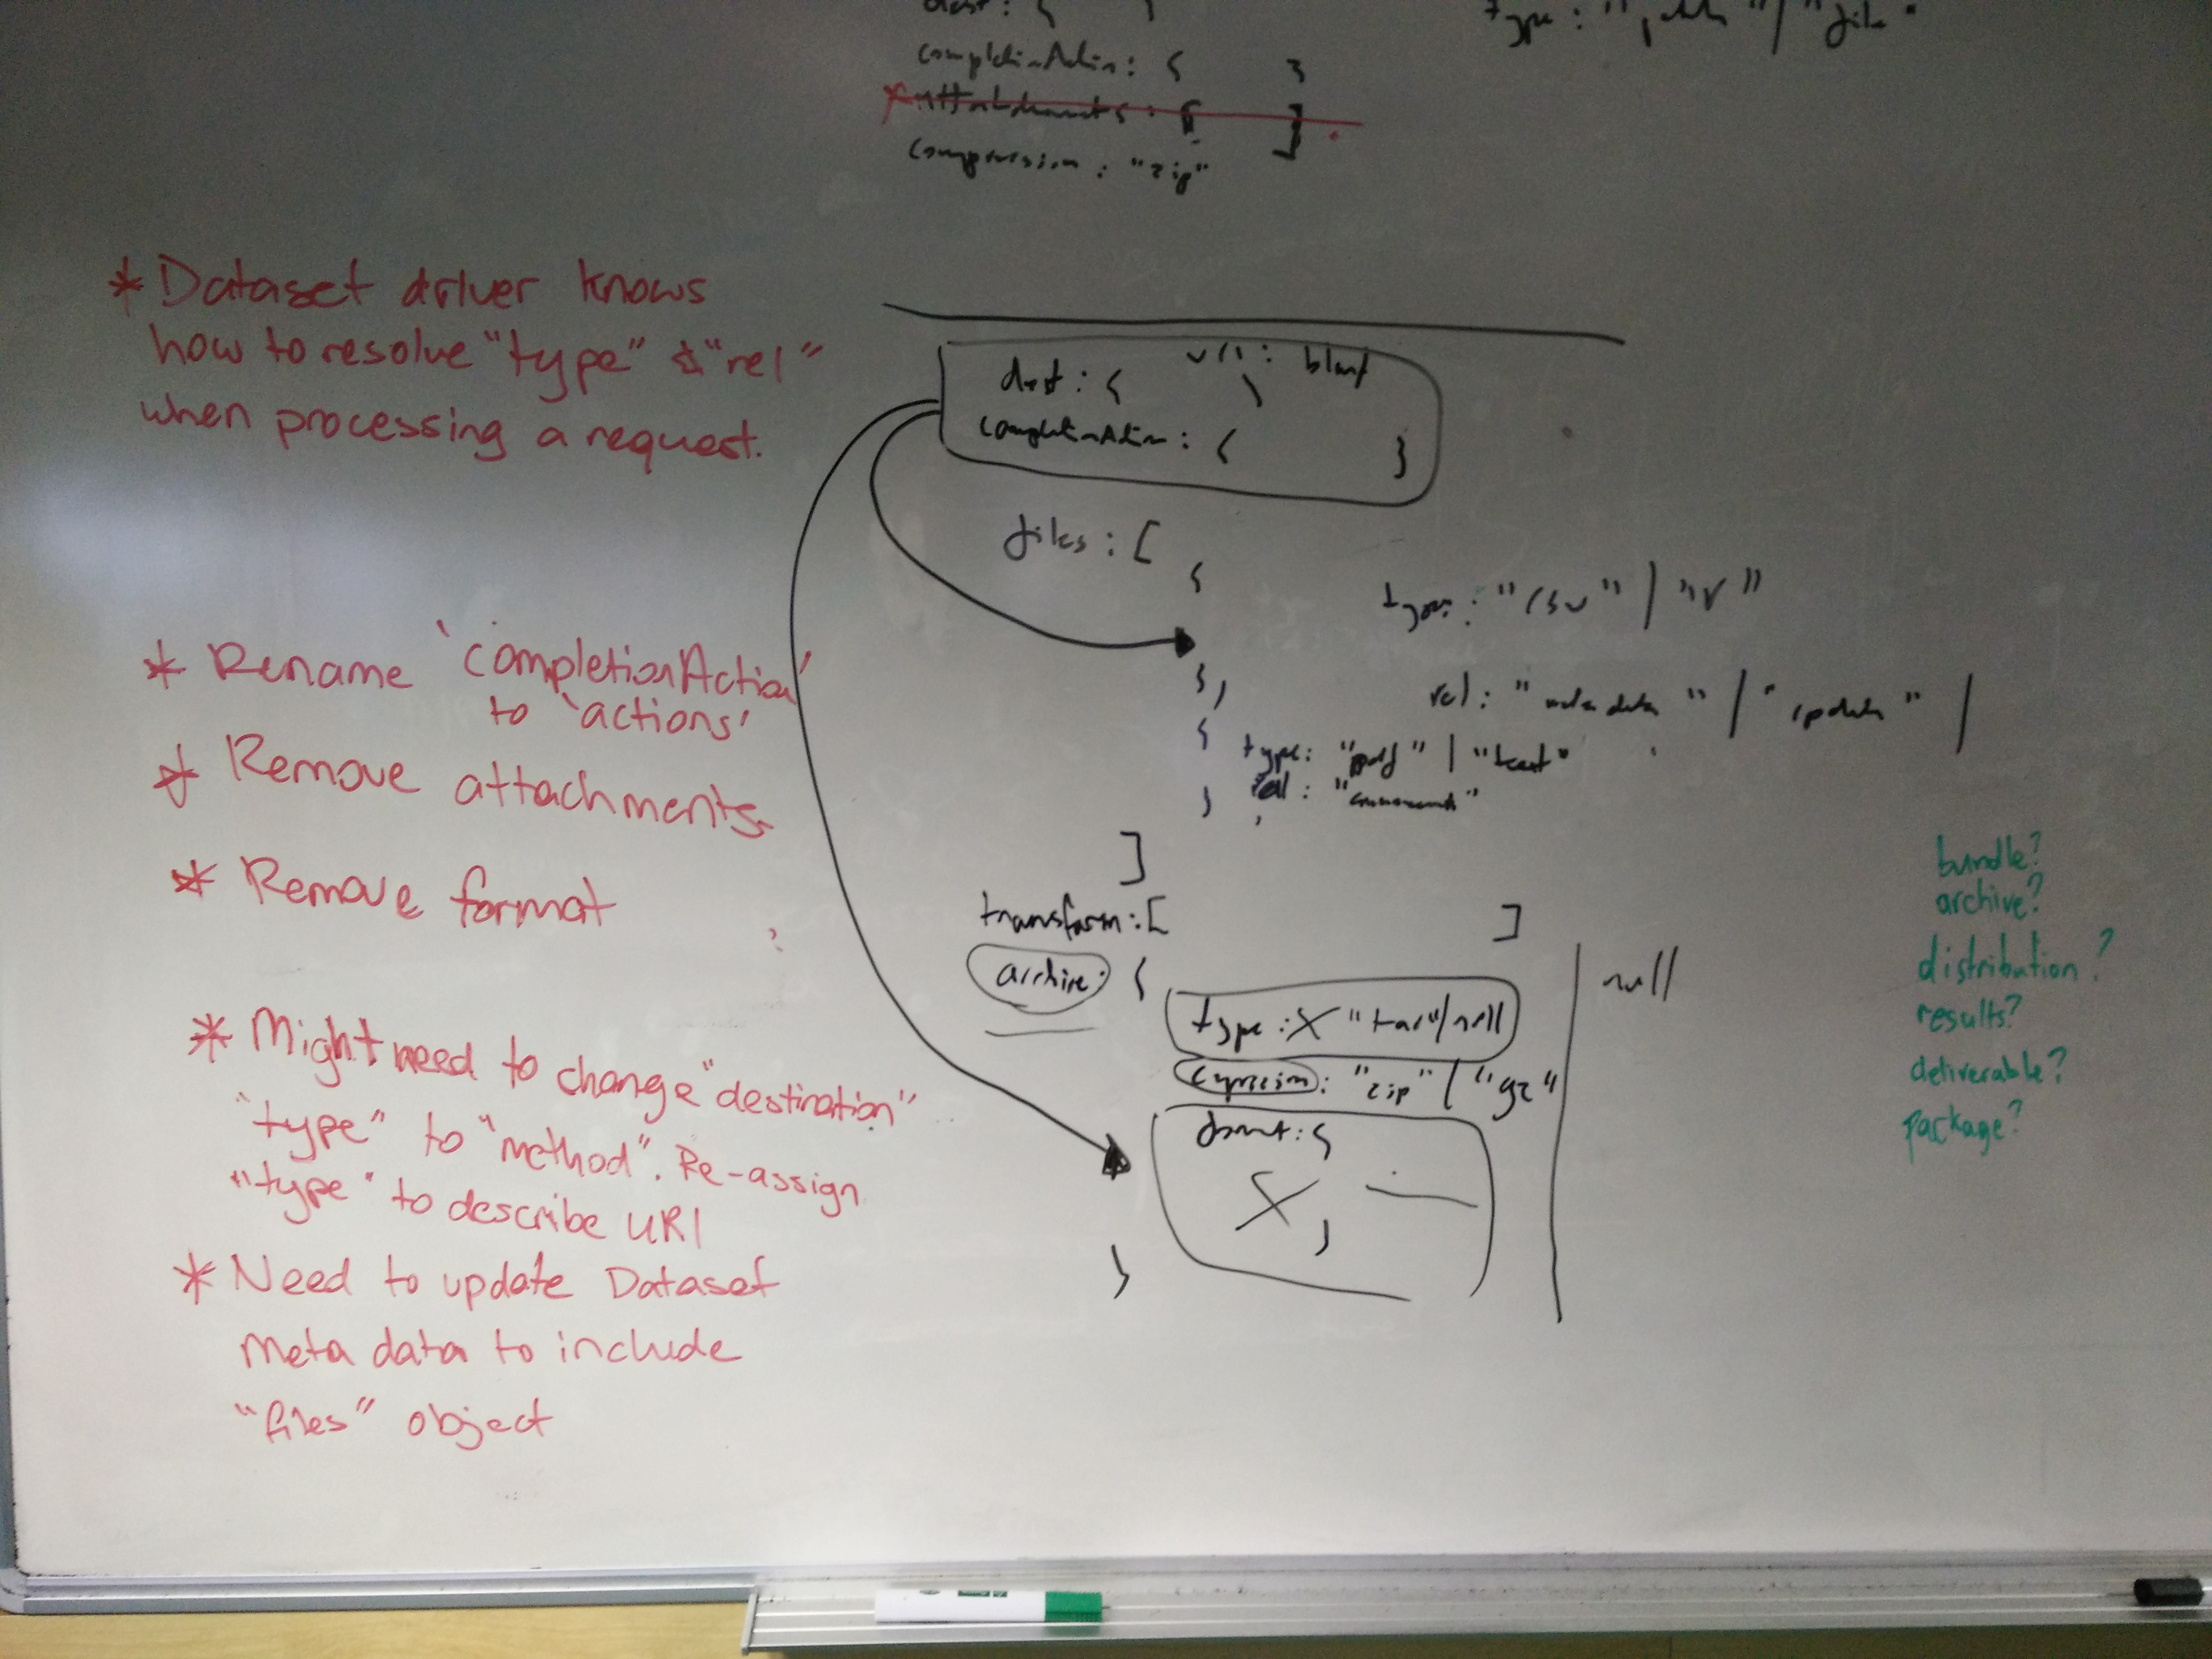 dest : {      }
completionAction : {      }
attachments : [      ]
compression : "zip"
type : "         " / "file"
* Dataset driver knows
how to resolve "type" & "rel"
when processing a request.
* Rename 'completionAction'
to 'actions'
* Remove attachments
* Remove format
* Might need to change "destination"
"type" to "method". Re-assign
"type" to describe URI
* Need to update Dataset
Meta data to include
"files" object
dest : {      }
completionAction : {      }
files : [
{
type : "csv" | "r"
},
rel : "metadata" | "update" |
{
type : "pdf" | "text"
rel :
}
]
transform : [      ]
archive : {
null
type : X "tar" / null
"zip" | "gz"
format : {
X
}
}
bundle?
archive?
distribution?
results?
deliverable?
package?